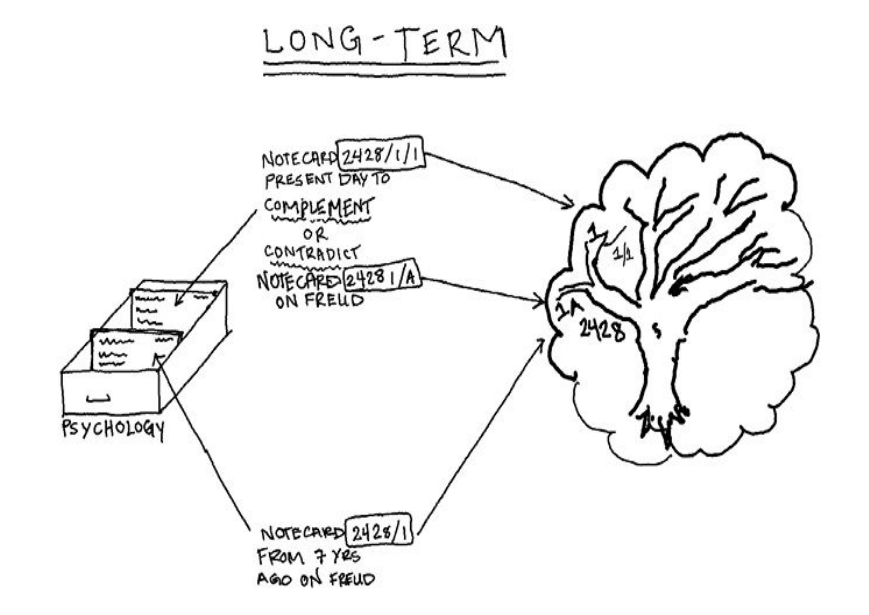 LONG-TERM
NOTECARD 2428/1/1
PRESENT DAY TO
COMPLEMENT
OR
CONTRADICT
NOTECARD 2428 1/A
ON FREUD
1
1/1
1A
2428
PSYCHOLOGY
NOTECARD 2428/1
FROM 7 YRS
AGO ON FREUD